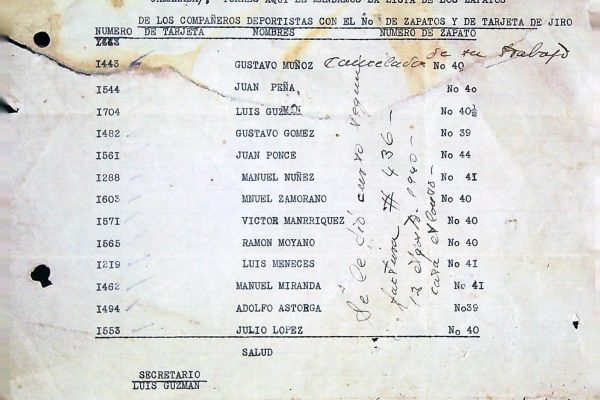 TORRES AQUI LE MANDAMOS LA LISTA DE LOS ZAPATOS
DE LOS COMPAÑEROS DEPORTISTAS CON EL No DE ZAPATOS Y DE TARJETA DE JIRO
NUMERO DE TARJETA NOMBRES NUMERO DE ZAPATO
I443 GUSTAVO MUÑOZ No 40
de su trabajo
I544 JUAN PEÑA No 40
I704 LUIS GUZMAN No 40½
I482 GUSTAVO GOMEZ No 39
I561 JUAN PONCE No 44
I288 MANUEL NUÑEZ No 4I
I603 MNUEL ZAMORANO No 40
I571 VICTOR MANRRIQUEZ No 40
I565 RAMON MOYANO No 40
I2I9 LUIS MENECES No 4I
I462 MANUEL MIRANDA No 4I
I494 ADOLFO ASTORGA No39
I553 JULIO LOPEZ No 40
Se le dió curso según
factura # 436 -
12 Agosto 1940 -
casa
SALUD
SECRETARIO
LUIS GUZMAN